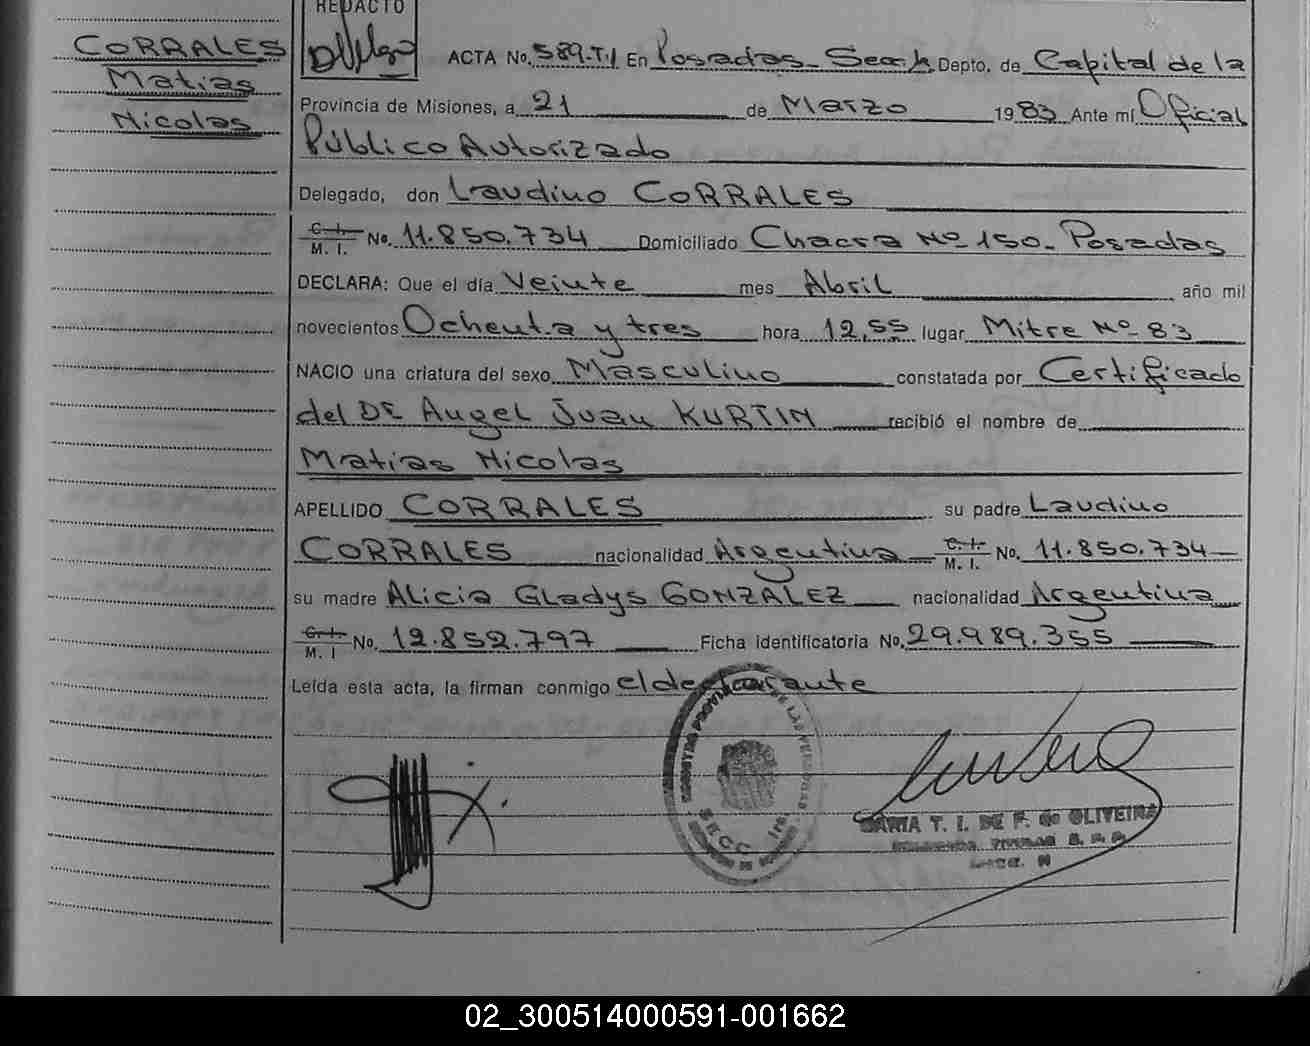 CORRALES
Matias
Nicolas
REDACTO
ACTA No. 589-T.I En Posadas Depto. de Capital de la
Provincia de Misiones, a 21 de Marzo 1983 Ante mí Oficial
Público Autorizado
Delegado, don Laudino CORRALES
C. I. M. I. No. 11.850.734 Domiciliado Chacra Nº 150. Posadas
DECLARA: Que el día Veinte mes Abril año mil
novecientos Ochenta y tres hora 12,55 lugar Mitre Nº 83
NACIO una criatura del sexo Masculino constatada por Certificado
del Dr Angel Juan KURTIN recibió el nombre de
Matias Nicolas
APELLIDO CORRALES su padre Laudino
CORRALES nacionalidad Argentina C. I. M. I. No. 11.850.734
su madre Alicia Gladys GONZALEZ nacionalidad Argentina
C. I. M. I No. 12.852.797 Ficha identificatoria No. 29.989.355
Leída esta acta, la firman conmigo el declarante
REGISTRO PROVINCIAL DE LAS PERSONAS
SECC.
MARIA T. I. DE F. de OLIVEIRA
02_300514000591-001662